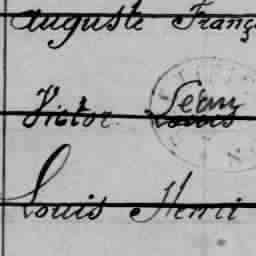 Auguste Franç
Victor Jean Louis
Louis Henri